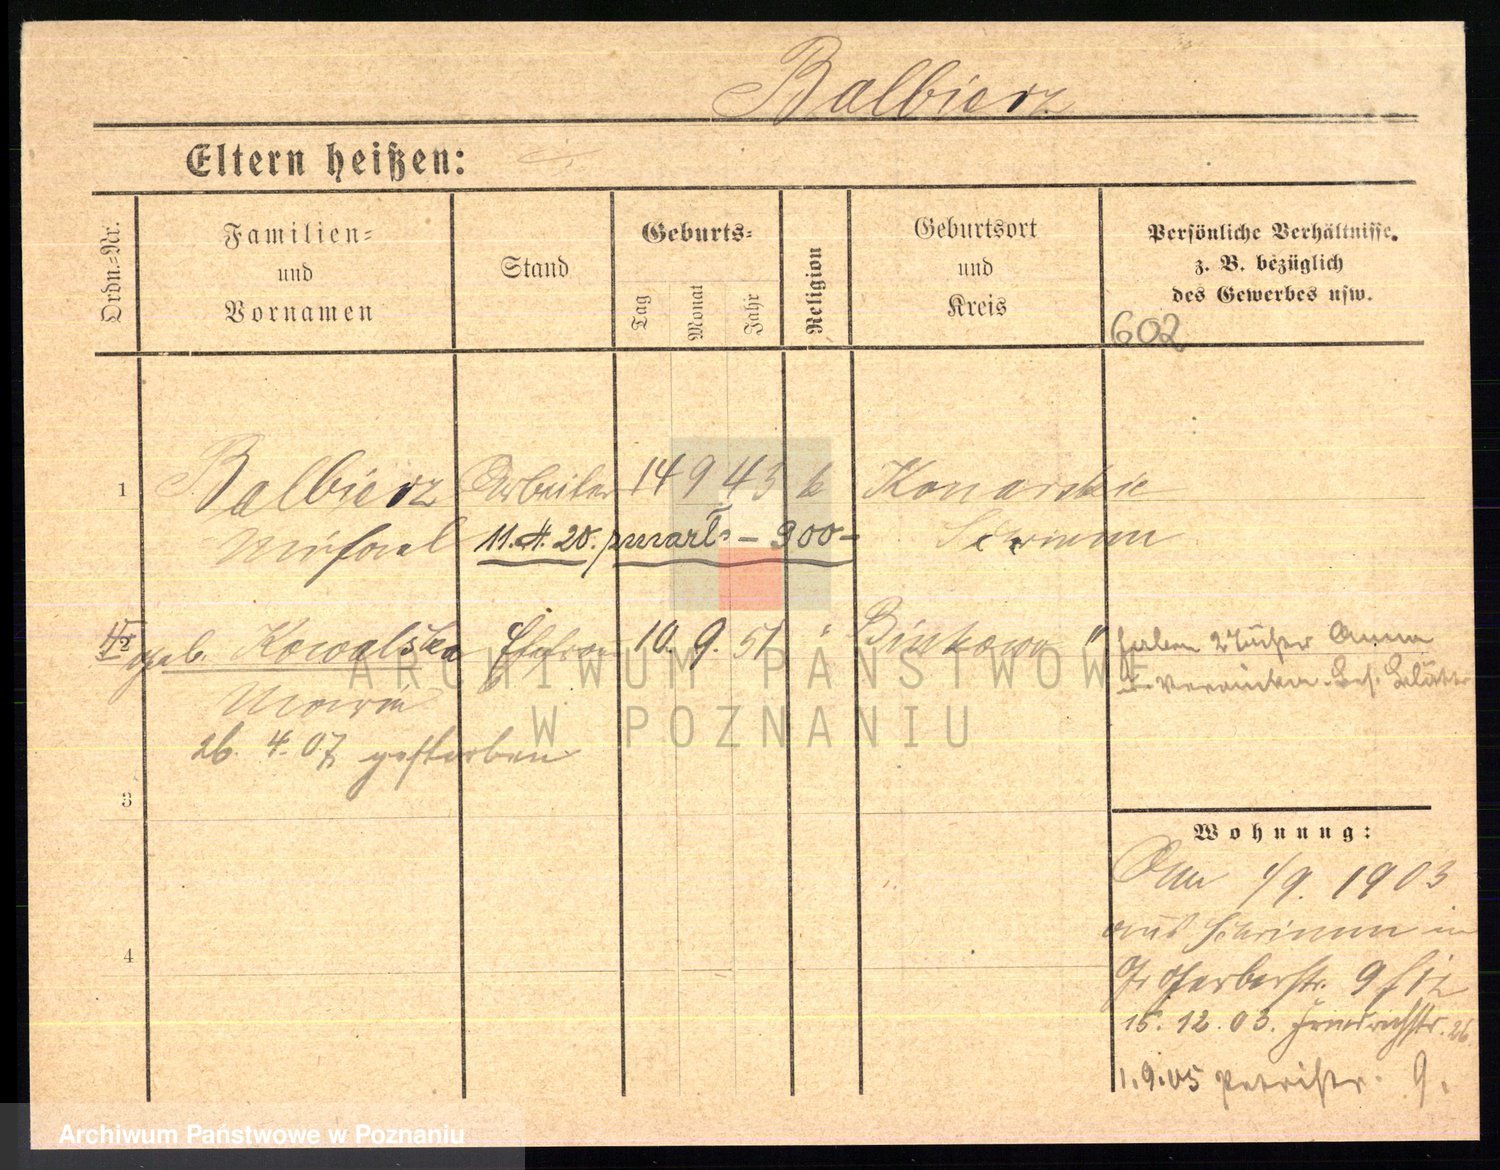 Balbierz
Eltern heißen:
Ordn.-Nr.
Familien-
und
Vornamen
Stand
Geburts-
Tag
Monat
Jahr
Religion
Geburtsort
und
Kreis
Persönliche Verhältnisse,
z. B. bezüglich
des Gewerbes usw.
602
1 Balbierz Arbeiter 14 9 43 k Konarskie
Michael 11. 4. 20. zmarł - 900- Schrimm
2 geb. Kowalska Ehefrau 10. 9. 51 " Binkowo "
Maria
26. 4. 07 gestorben
haben 2 Töchter Anna
u. Veronika. Bes. Blätter
3
Wohnung:
Am 1/9. 1903
aus Schrimm in
Gr Gerberstr. 9
15. 12. 03. Friedrichstr. 26
1. 9. 05 Petristr. 9.
4
ARCHIWUM PAŃSTWOWE
W POZNANIU
Archiwum Państwowe w Poznaniu